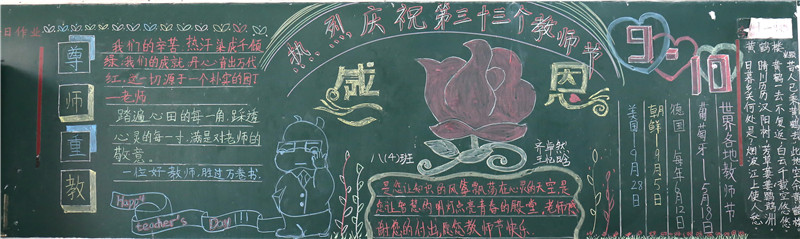 日作业
尊
师
重
教
我们的辛苦,热汗染成千领
绿;我们的成就,开心育出万代
红,这一切源于一个朴实的园丁
—老师
踏遍心田的每一角,踩透
心灵的每一寸,满是对老师的
敬意。
一位好教师,胜过万卷书.
Happy
teacher's
Day!
热烈庆祝第三十三个教师节
感
恩
八(4)班
齐卓然
是您让知识的风筝飘荡在心灵的天空是
您让智慧的明灯点亮青春的殿堂,老师感
谢您的付出,祝您教师节快乐.
9-10
世界各地教师节
葡萄牙—5月18日
德国—每年6月12日
朝鲜—9月5日
美国—9月28日
昔人已乘黄鹤去,此地空余黄鹤
楼.黄鹤一去不复返,白云千载空悠悠.
晴川历历汉阳树,芳草萋萋鹦鹉洲.
日暮乡关何处是,烟波江上使人愁